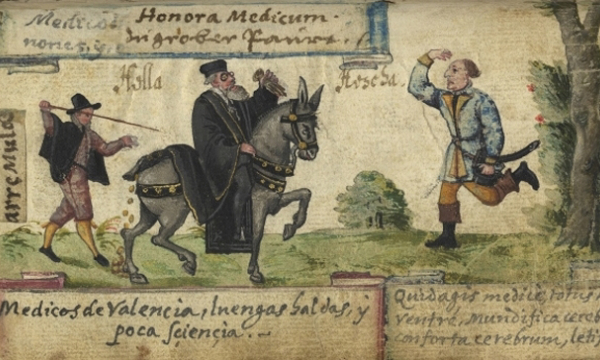 Medicos
nones, y,
Honora Medicum.
Ein grober
Holla
Hoscha.
arre mula
Medicos de Valencia, luengas haldas, y
poca sçiençia.
Quid agis medice, totus
ventre, Mundifica cereb
conforta cerebrum, leti